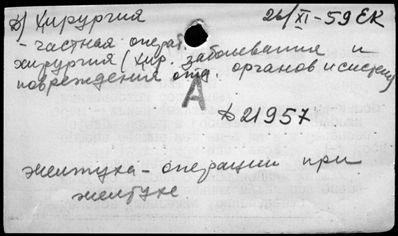 Д) Хирургия 26/XI-59 ЕК
- частная операт.
хирургия (хир. заболевания и
повреждения отд. органов и систем)
А
Д 21957
Желтуха - операции при
желтухе